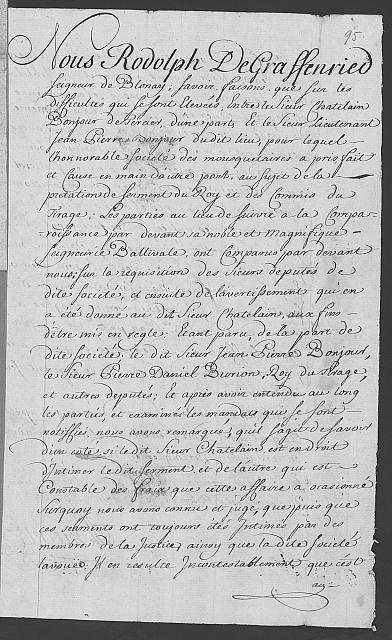 95
Nous Rodolph DeGraffenried
Seigneur de Blonay; savoir faisons, que sur les
difficultés qui se sont Elevées, entre le Sieur Chatelain
Bonjour de Bercier, d'une part, Et le Sieur Lieutenant
Jean Pierre Bonjour du dit lieu, pour lequel
lhonnorable Société des mousquetaires a pris fait
et Cause en main d'autre part, au sujet de la
prétation de serment du Roy et des Commis du
tirage; Les parties au lieu de suivre a la Compa-
-roissance par devant sa noble et Magnifique
Seigneurie Ballivale, ont Comparus par devant
nous; sur la requisition des Sieurs deputés de
dite société, et ensuite de lavertissement qui en
a été donné au dit Sieur Chatelain, aux fins
d'être mis en regle; Etant paru, de la part de
dite Société le dit Sieur Jean Pierre Bonjour,
le Sieur Pierre Daniel Burion, Roy du tirage,
et autres deputés; Et après avoir entendu au long
les parties, et examinés les mandats qui se sont
notiffiés, nous avons remarqué, quil sagit de savoir
d'un coté, si le dit Sieur Chatelain est en droit
d'Intimer le dit serment, et de lautre qui est
Coustable des fraix que cette affaire a ocasionné
Surquoy nous avons connu et jugé, que puis que
ces serments ont toujours étés Intimés par des
membres de la Justice, ainsy que la dite Société
lavouë, Il en resulte Incontestablement, que c'est
au